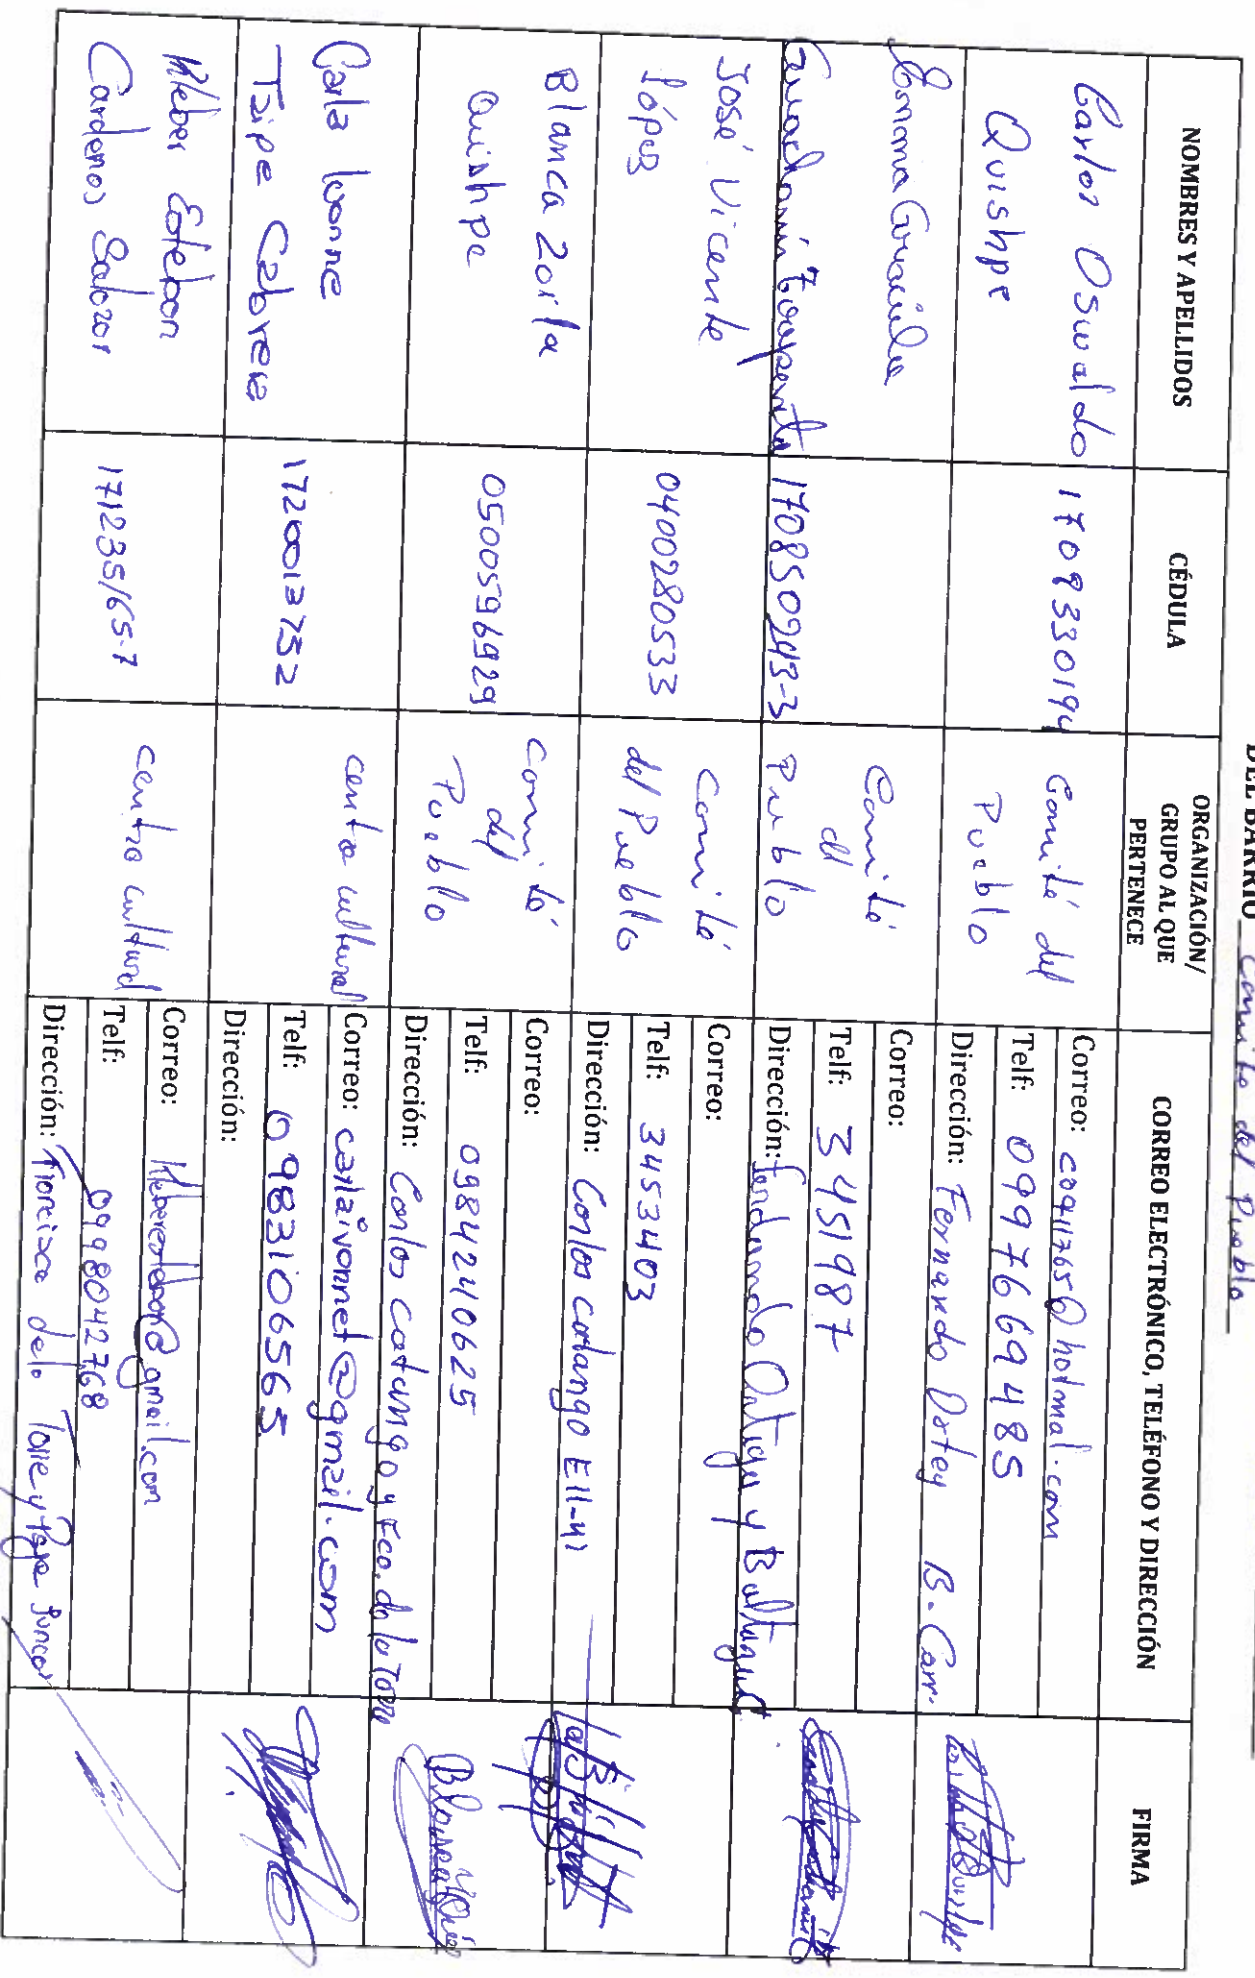 DEL BARRIO Comite del Pueblo
NOMBRES Y APELLIDOS
CÉDULA
ORGANIZACIÓN/
GRUPO AL QUE
PERTENECE
CORREO ELECTRÓNICO, TELÉFONO Y DIRECCIÓN
FIRMA
Carlos Oswaldo
Quishpe
1709330194
Comité del
Pueblo
Correo: coq11765@hotmal.com
Telf: 0997669485
Dirección: Fernando Ostey B. Carr.
Guachamin
170850943-3
Comité
del
Pueblo
Correo:
Telf: 3451987
Dirección: y
José Vicente
López
0400280533
Comité
del Pueblo
Correo:
Telf: 3453403
Dirección: Carlos Catango E11-41
Blanca Zoila
Quishpe
0500596929
Comité
del
Pueblo
Correo:
Telf: 0984240625
Dirección: Carlos Catango y Fco. de la Torre
Carla Ivonne
Taipe Cabrera
1720013752
centro cultural
Correo: carlaivonnet@gmail.com
Telf: 0983106565
Dirección:
Kleber Esteban
Cardenas Salazar
171235165-7
centro cultural
Correo: kleberesteban@gmail.com
Telf: 0998042768
Dirección: Francisco de la Torre y Juncos